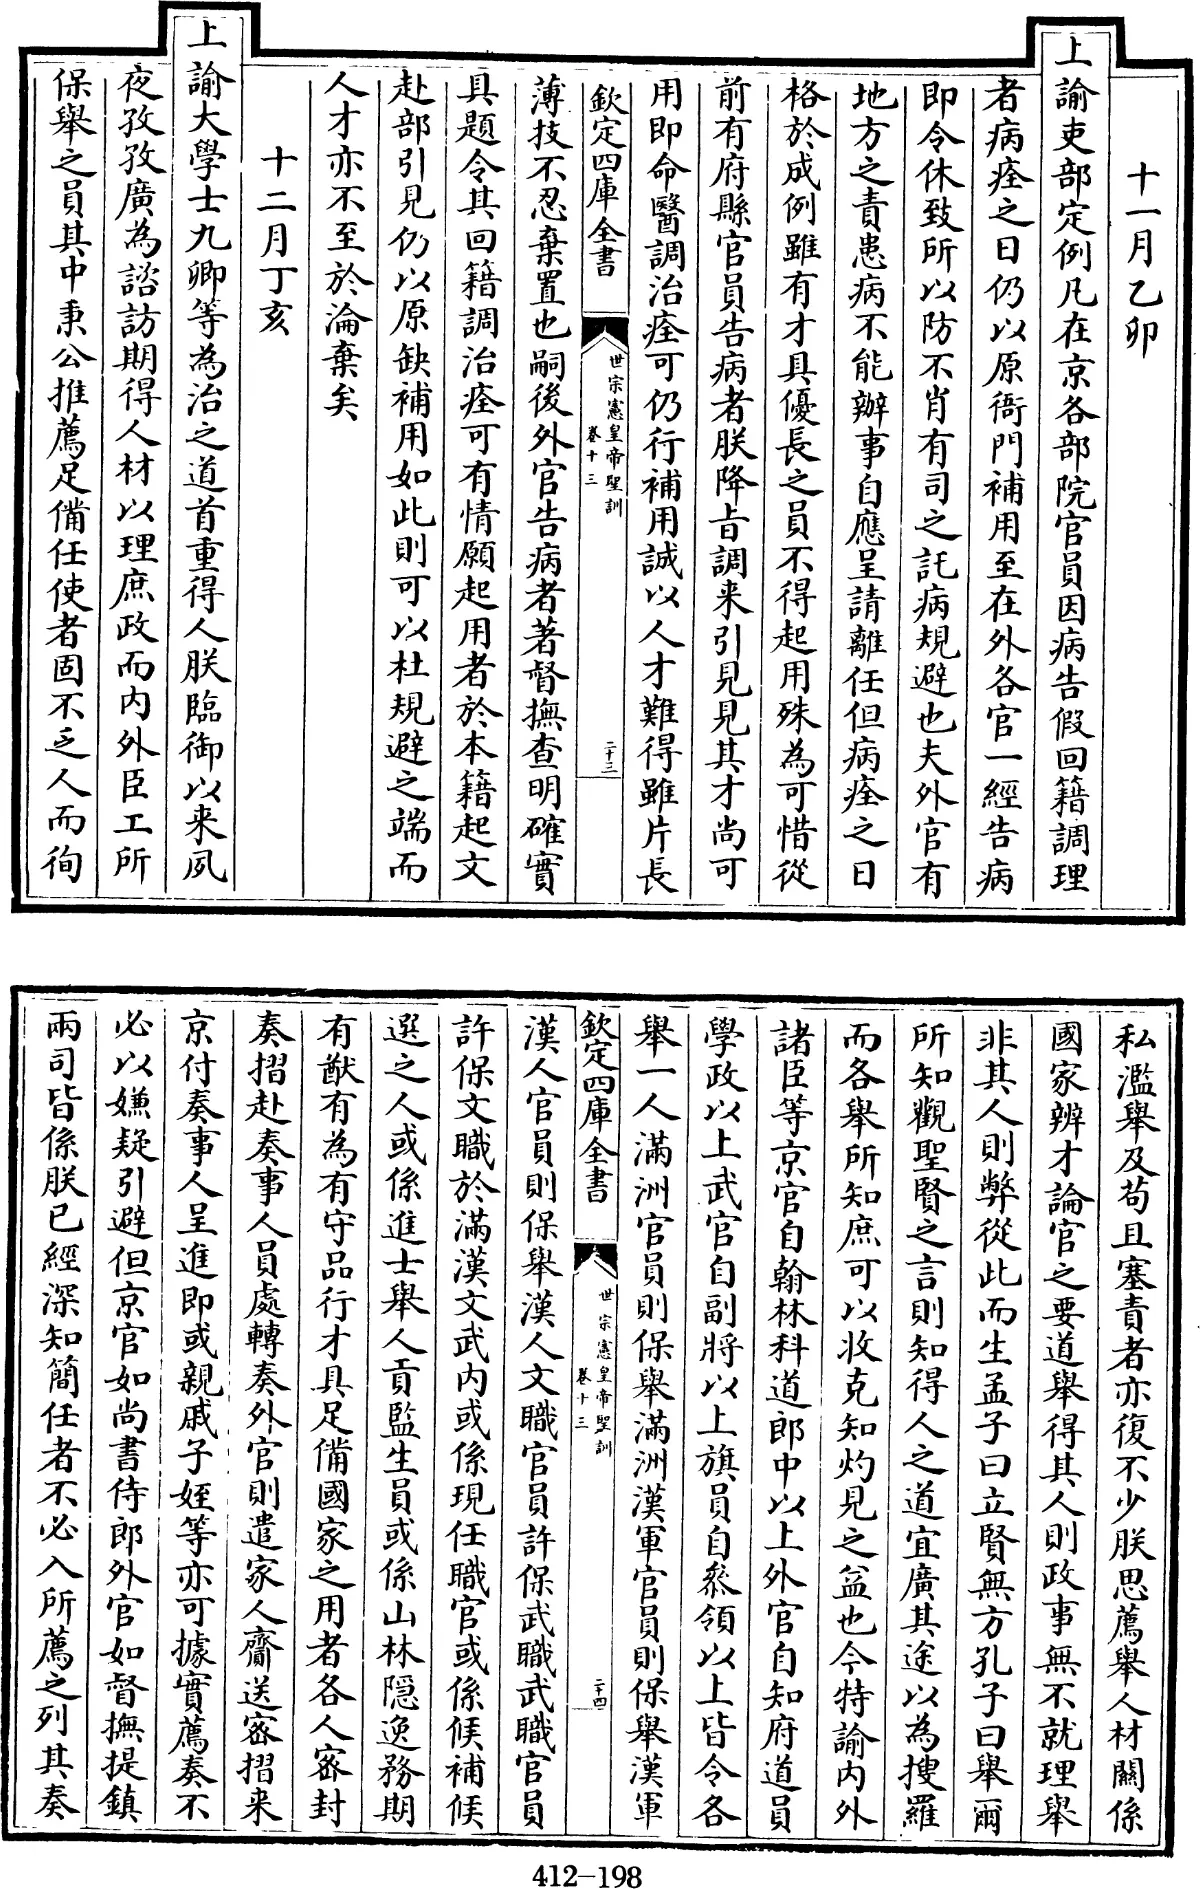 十一月乙卯
上諭吏部定例凡在京各部院官員因病告假回籍調理
者病痊之日仍以原衙門補用至在外各官一經告病
即令休致所以防不肖有司之託病規避也夫外官有
地方之責患病不能辦事自應呈請離任但病痊之日
格於成例雖有才具優長之員不得起用殊為可惜從
前有府縣官員告病者朕降旨調来引見見其才尚可
用即命醫調治痊可仍行補用誠以人才難得雖片長
欽定四庫全書
世宗憲皇帝聖訓
卷十三
二十三
薄技不忍棄置也嗣後外官告病者著督撫查明確實
具題令其回籍調治痊可有情願起用者於本籍起文
赴部引見仍以原缺補用如此則可以杜規避之端而
人才亦不至於淪棄矣
十二月丁亥
上諭大學士九卿等為治之道首重得人朕臨御以来夙
夜孜孜廣為諮訪期得人材以理庶政而内外臣工所
保舉之員其中秉公推薦足備任使者固不乏人而徇
私濫舉及苟且塞責者亦復不少朕思薦舉人材關係
國家辨才論官之要道舉得其人則政事無不就理舉
非其人則弊從此而生孟子曰立賢無方孔子曰舉爾
所知觀聖賢之言則知得人之道宜廣其途以為搜羅
而各舉所知庶可以收克知灼見之益也今特諭内外
諸臣等京官自翰林科道郎中以上外官自知府道員
學政以上武官自副將以上旗員自叅領以上皆令各
舉一人滿洲官員則保舉滿洲漢軍官員則保舉漢軍
欽定四庫全書
世宗憲皇帝聖訓
卷十三
二十四
漢人官員則保舉漢人文職官員許保武職武職官員
許保文職於滿漢文武内或係現任職官或係候補候
選之人或係進士舉人貢監生員或係山林隱逸務期
有猷有為有守品行才具足備國家之用者各人密封
奏摺赴奏事人員處轉奏外官則遣家人齎送密摺来
京付奏事人呈進即或親戚子姪等亦可據實薦奏不
必以嫌疑引避但京官如尚書侍郎外官如督撫提鎮
兩司皆係朕已經深知簡任者不必入所薦之列其奏
412-198